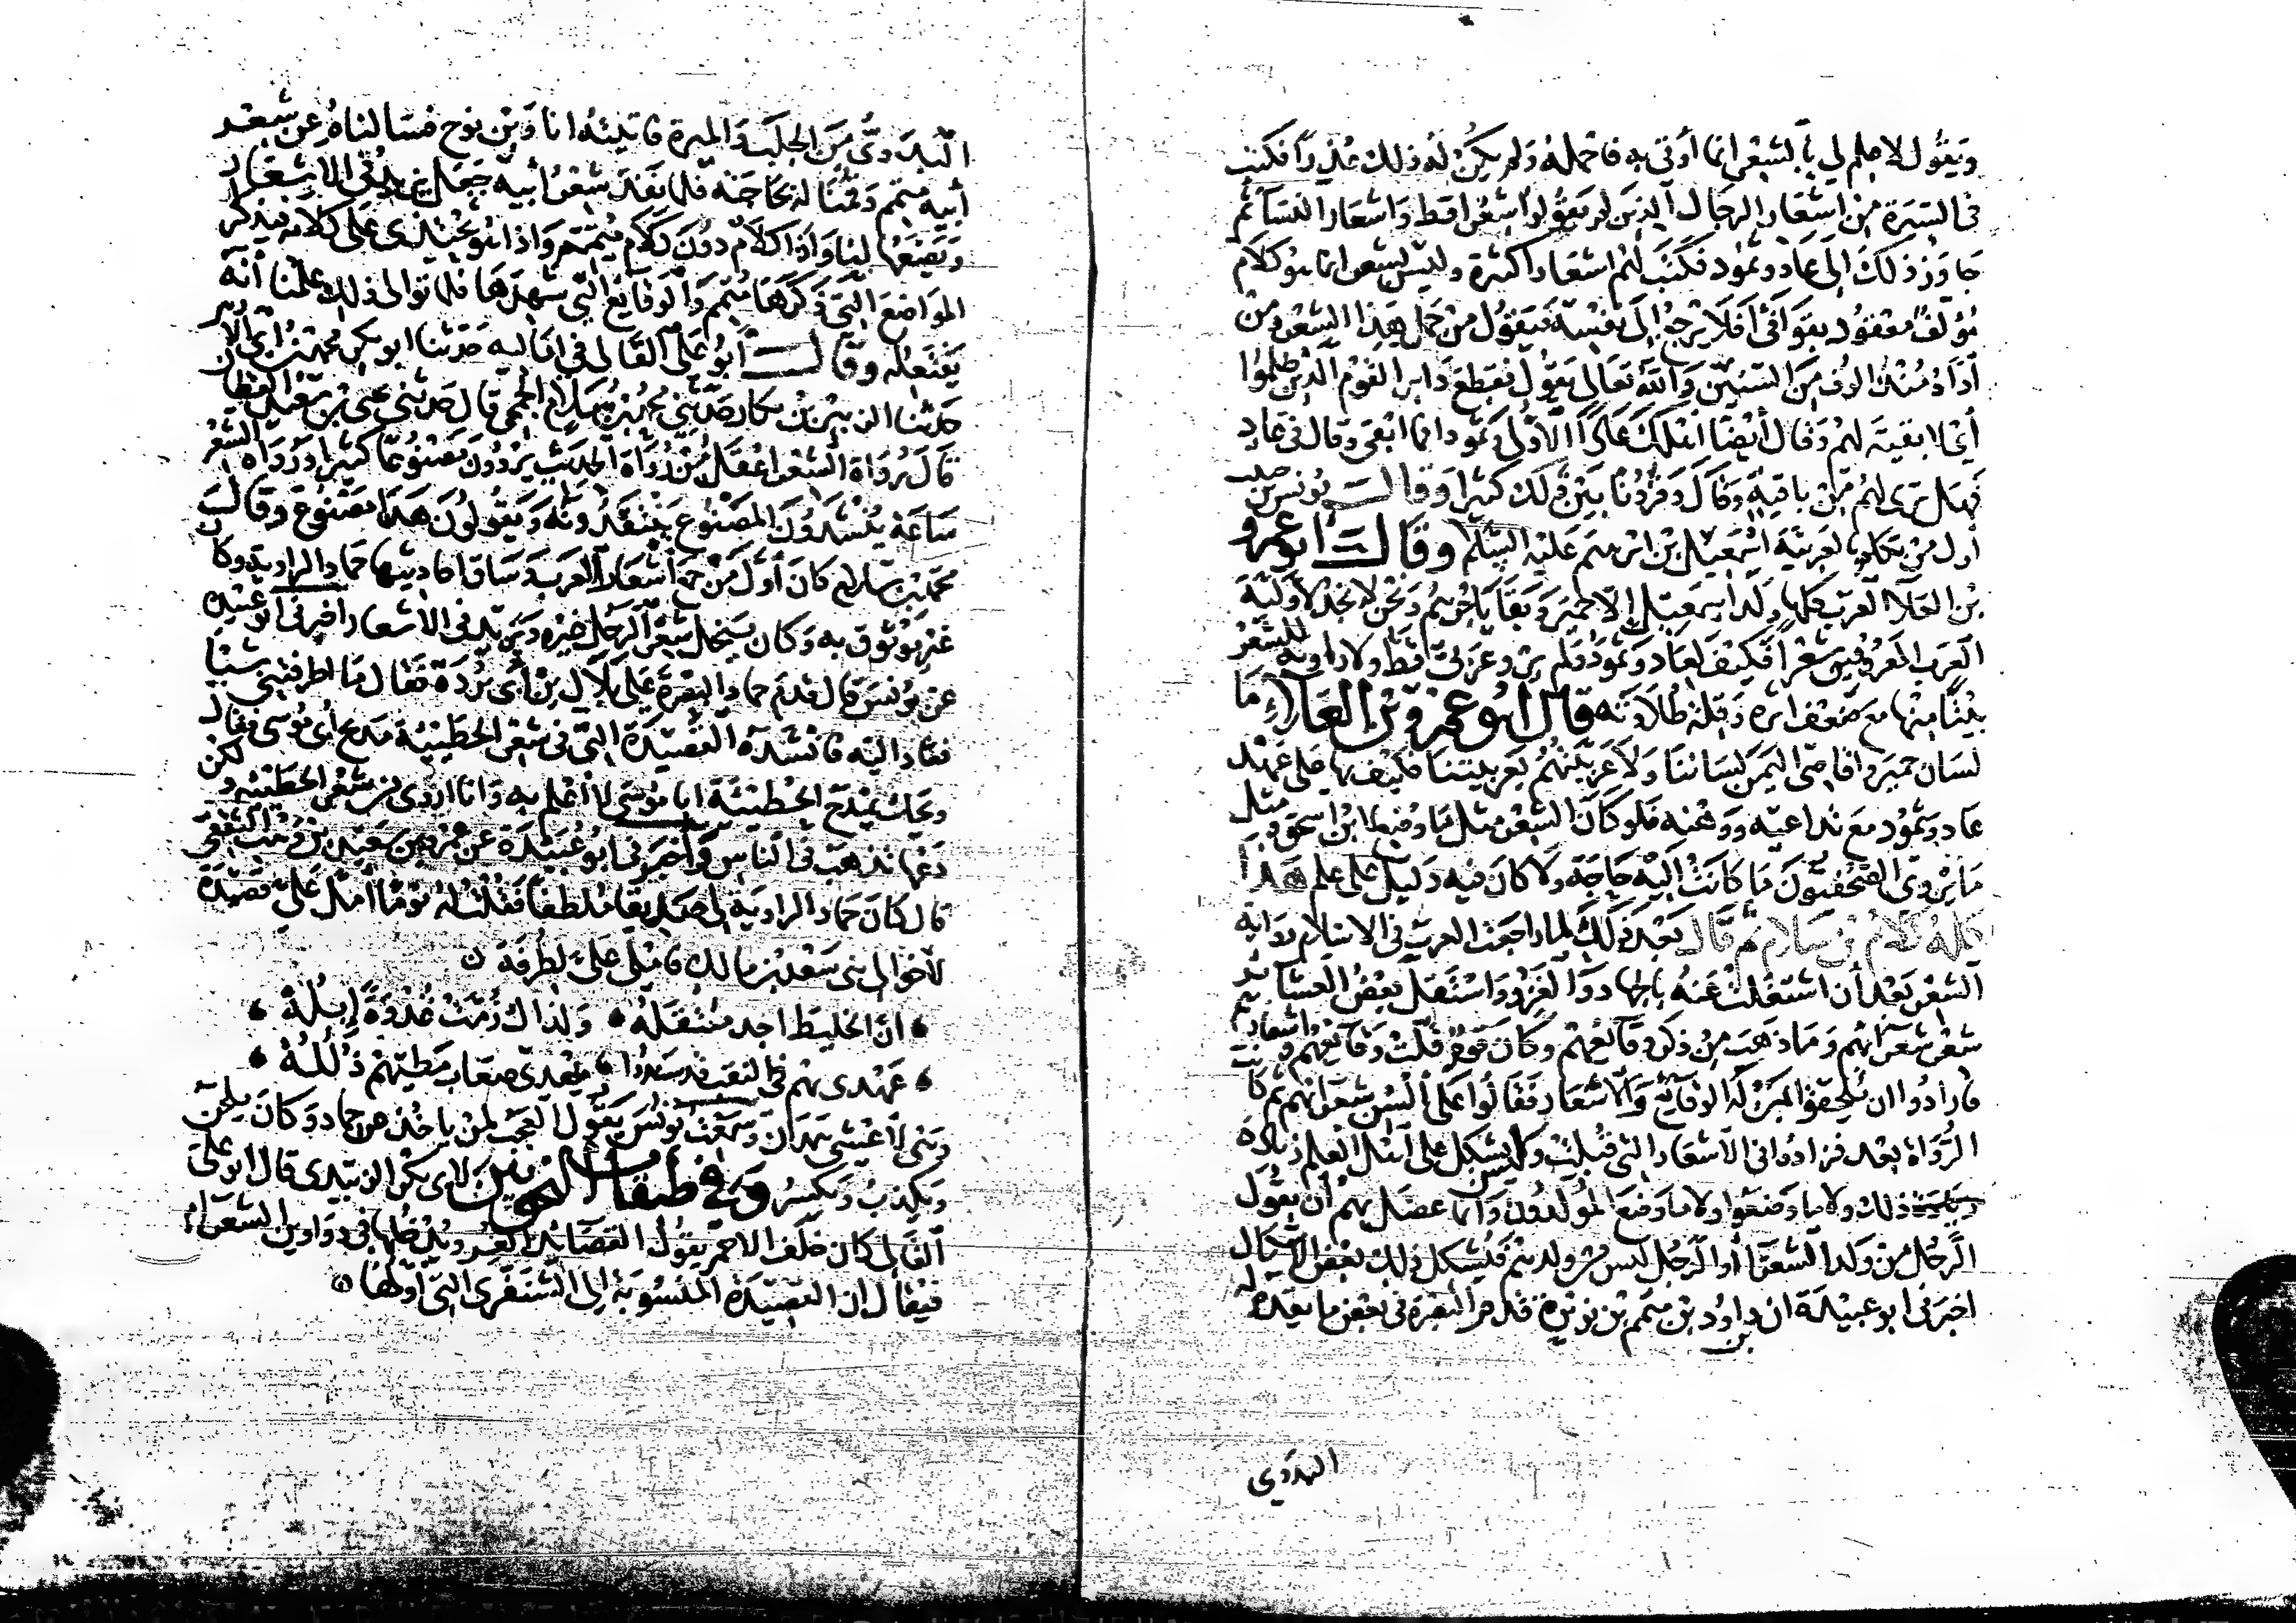 ويقول لا علم لي بالشعر انما أوتى به فاحمله ولم يكن له ذلك عذرا فكتب
في السيرة من اشعار الرجال الذين لم يقولوا شعرا قط واشعار النساء ثم
جاوز ذلك الى عاد وثمود فكتب لهم اشعارا كثيرة وليس بشعر انما هو كلام
مؤلف معقود بقوافي أفلا يرجع إلى نفسه فيقول من حمل هذا الشعر ومن
أداه منذ ألوف من السنين والله تعالى يقول فقطع دابر القوم الذين ظلموا
أي لا بقية لهم وقال أيضا أهلك عادا الأولى وثمودا فما ابقى وقال في عاد
فهل ترى لهم من باقية وقال وقرونا بين ذلك كثيرا وقال يونس بن حبيب
أول من تكلم بالعربية اسمعيل بن ابرهيم عليه السلم وقال ابو عمرو
بن العلاء العرب كلها ولد اسمعيل إلا حمير وبقايا جرهم ونحن لا نجد لأولية
العرب المعروفين شعرا فكيف لعاد وثمود فلم يرو عربي قط ولا راوية للشعر
بيتا منها مع ضعف اثره وقلة طلاوته قال ابو عمرو بن العلاء ما
لسان حمير واقاصي اليمن لساننا ولا عربيتهم بعربيتنا فكيف بها على عهد
عاد وثمود مع تداعيه ووهنه فلو كان الشعر مثل ما وضع ابن اسحق ومثل
ما يروي الصحفيون ما كانت اليه حاجة ولا كان فيه دليل على علم هذا
كله كلام بن سلام ثم قال بعد ذلك لما راجعت العرب في الاسلام رواية
الشعر بعد أن اشتغلت عنه بالجهاد والغزو واستقل بعض العشائر
شعر شعرائهم وما ذهب من ذكر وقائعهم وكان قوم قلت وقائعهم واشعارهم
فارادوا ان يلحقوا بمن له الوقائع والاشعار فقالوا على ألسن شعرائهم ثم كانت
الرواة بعد فزادوا في الاشعار التي قيلت وليس يشكل على أهل العلم زيادة
ذلك ولا ما وضعوا ولا ما وضع المولدون وانما عضل بهم أن يقول
الرجل من ولد الشعراء أو الرجل ليس من ولدهم فيشكل ذلك بعض الاشكال
اخبرني ابو عبيدة ان داود بن متمم بن نويرة قدم البصرة في بعض ما يقدم له
بن
البدوي
البدوي من الجلب والميرة فاتيته انا وبن نوح فسألناه عن شعر
أبيه متمم وقمنا له بحاجته فلما نفد شعر أبيه جعل يزيد في الاشعار
ويصنعها لنا واذا كلام دون كلام متمم واذا هو يحتذي على كلامه فيذكر
المواضع التي ذكرها متمم والوقائع التي شهدها فلما توالى ذلك علمنا أنه
يفتعله وقال أبو على القالى في اماليه حدثنا ابو بكر محمد بن أبي الازهر
حدثنا الزبير بن بكار حدثني محمد بن سلام الجمحي قال حدثني يحيى بن سعيد القطان
قال رواة الشعر اعقل من رواة الحديث يروون مصنوعا كثيرا ورواة الشعر
ساعة ينشدون المصنوع ينتقدونه ويقولون هذا مصنوع وقال
محمد بن سلام كان أول من جمع أشعار العرب وساق احاديثها حماد الراوية وكان
غير موثوق به وكان ينحل شعر الرجل غيره ويزيد في الاشعار اخبرني ابو عبيدة
عن يونس قال قدم حماد البصرة على بلال بن أبي بردة فقال ما اطرفتني شيئا
فعاد اليه فانشده القصيدة التي في شعر الحطيئة مدح أبي موسى فقال
ويحك يمدح الحطيئة ابا موسى لا أعلم به وانا اروي من شعر الحطيئة ولكن
دعها تذهب في الناس واخبرني أبو عبيدة عن عمر بن سعيد بن وهب الثقفي
قال كان حماد الراوية لي صديقا ملطفا فقلت له يوما أمل علي قصيدة
لأخوالي بني سعد بن مالك فاملى علي لطرفة
ان الخليط اجد منتقله ولذاك زمت غدوة إبله
عهدي بهم في النقب قد سندوا تهدي صعاب مطيهم ذلله
وهي لأعشى همدان وسمعت يونس يقول العجب لمن ياخذ عن حماد وكان يلحن
ويكذب ويكسر وفي طبقات النحويين لابي بكر الزبيدي قال ابو علي
القالي كان خلف الاحمر يقول القصائد الغر ويدخلها في دواوين الشعراء
فيقال ان القصيدة المنسوبة إلى الشنفرى التي أولها